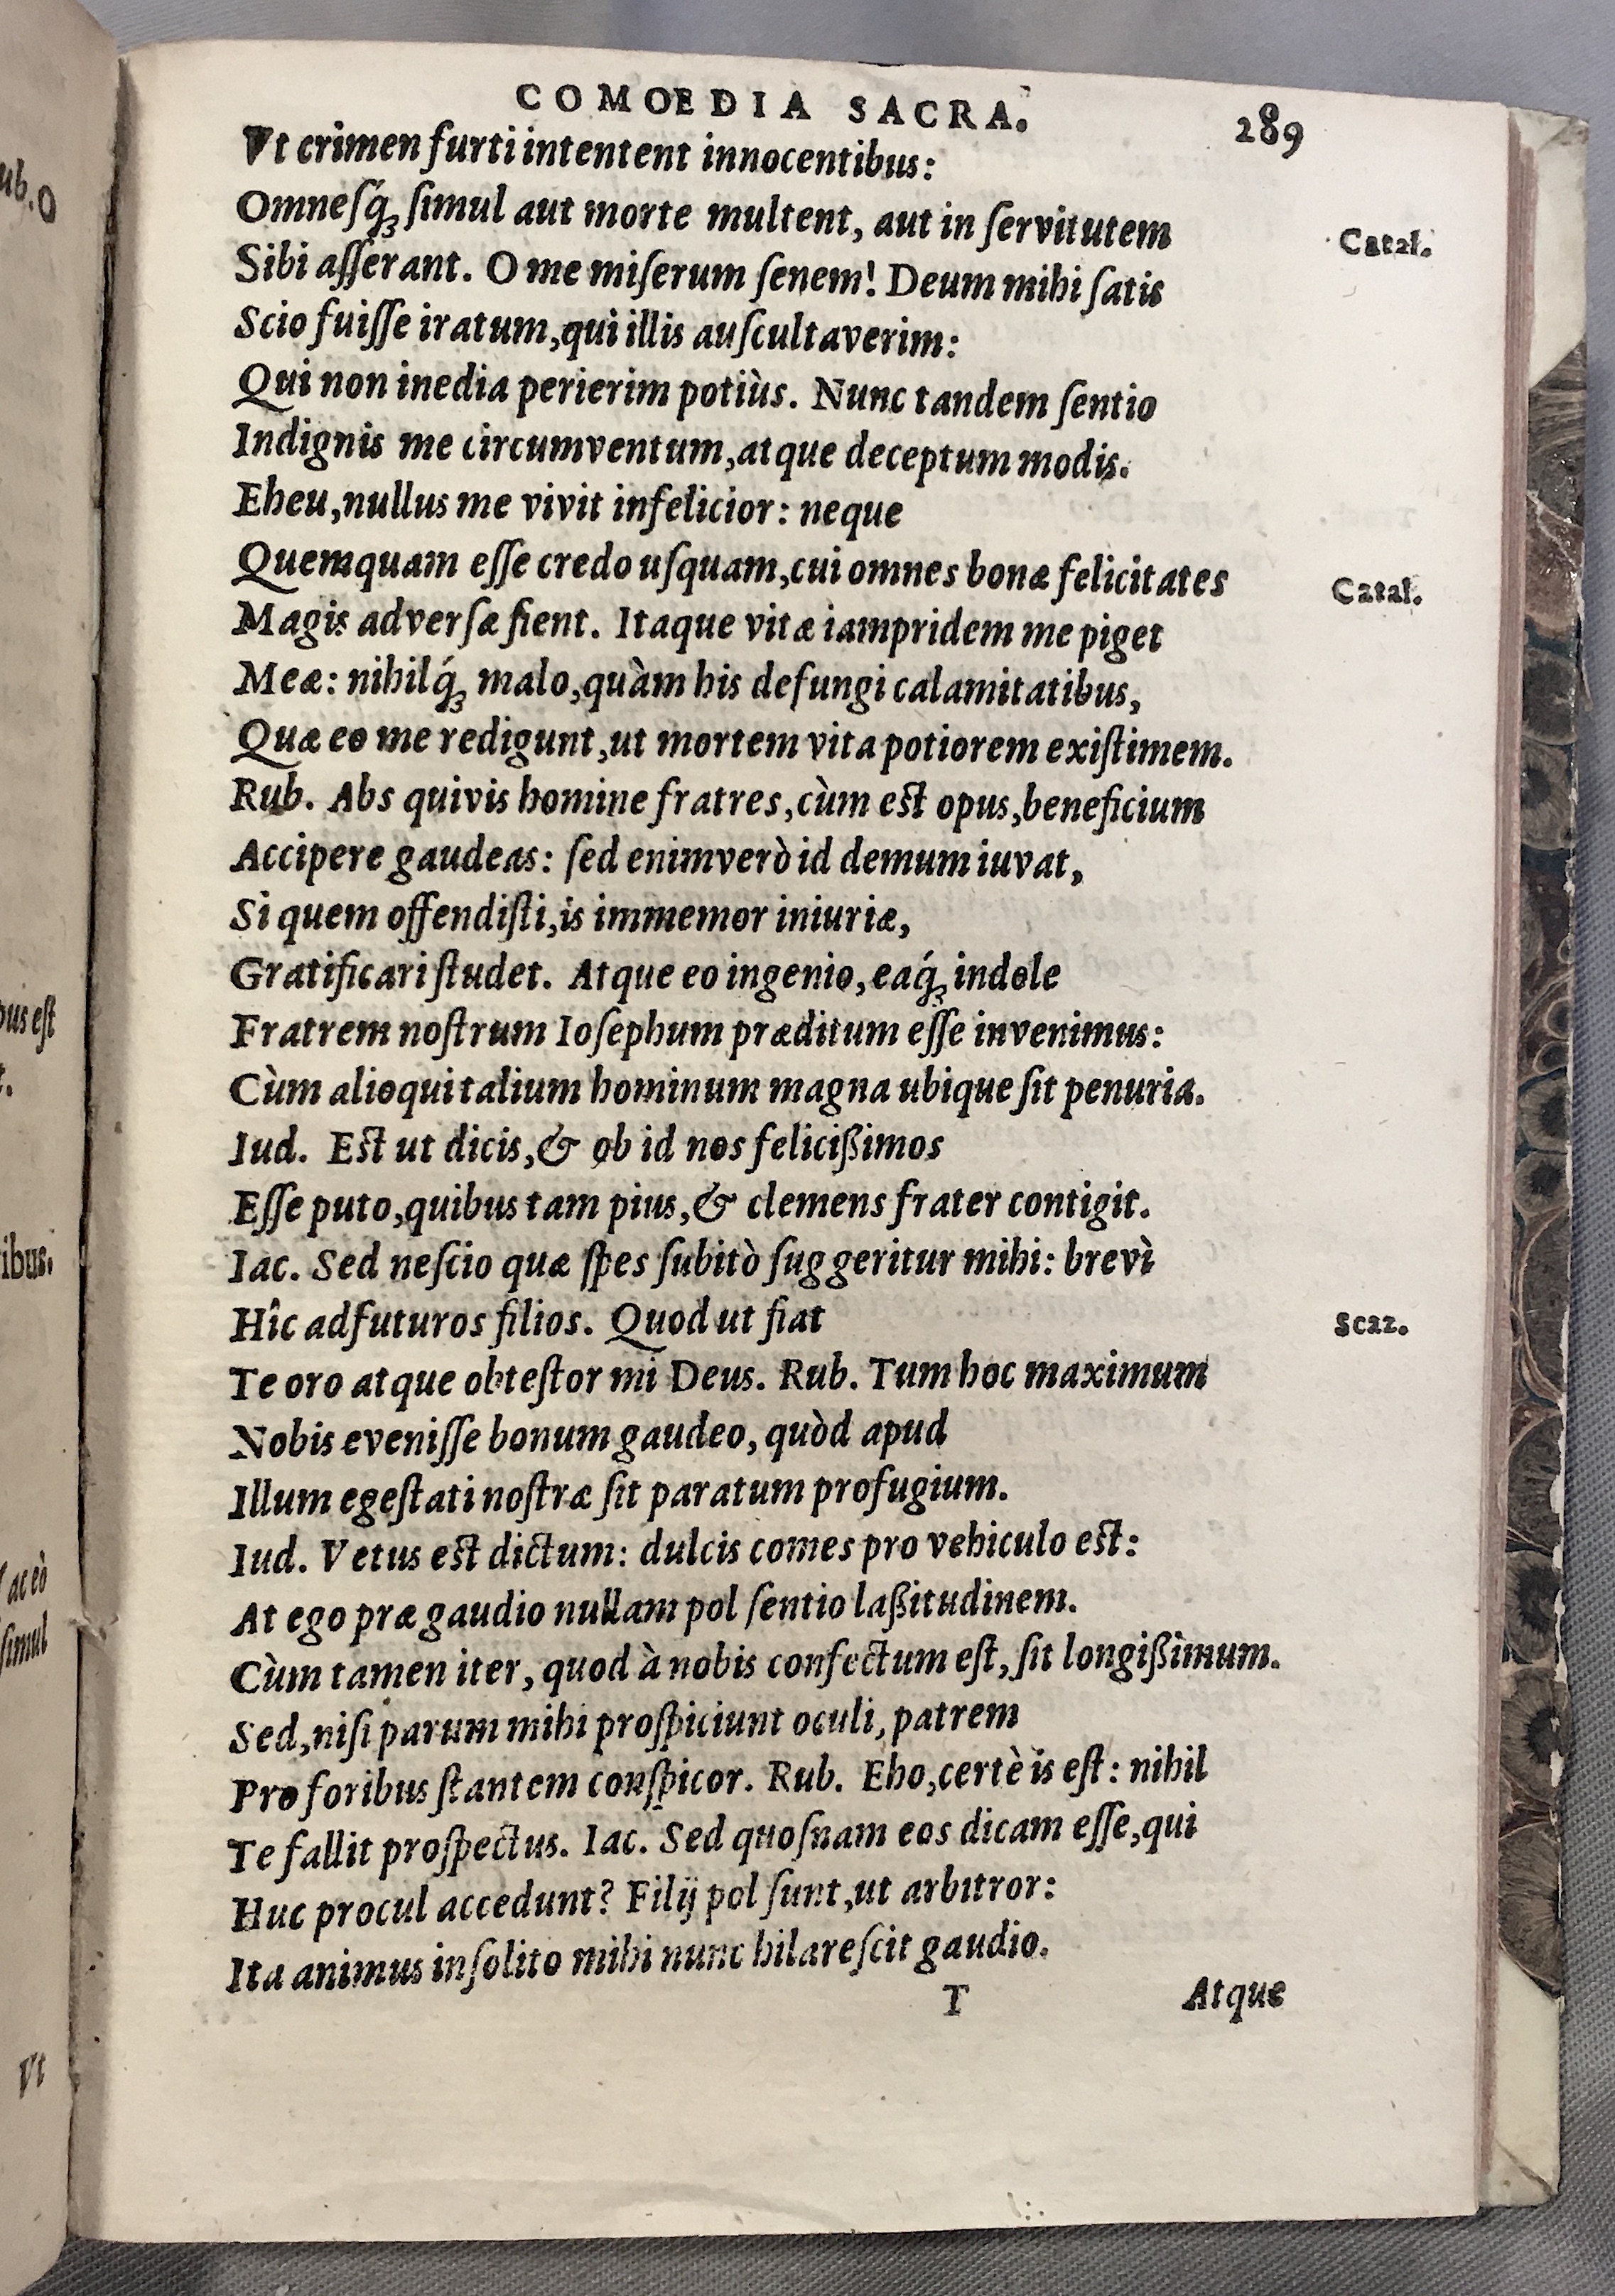 COMOEDIA SACRA. 289
Vt crimen furti intentent innocentibus:
Omneſq́ꝫ ſimul aut morte multent, aut in ſervitutem Catal.
Sibi aſſerant. O me miſerum ſenem! Deum mihi ſatis
Scio fuiſſe iratum, qui illis auſcultaverim:
Qui non inedia perierim potiùs. Nunc tandem ſentio
Indignis me circumventum, atque deceptum modis.
Eheu, nullus me vivit infelicior: neque
Quemquam eſſe credo uſquam, cui omnes bonæ felicitates Catal.
Magis adverſæ fient. Itaque vitæ iampridem me piget
Meæ: nihilq́ꝫ malo, quàm his defungi calamitatibus,
Quæ eo me redigunt, ut mortem vita potiorem exiſtimem.
Rub. Abs quivis homine fratres, cùm eſt opus, beneficium
Accipere gaudeas: ſed enimverò id demum iuvat,
Si quem offendiſti, is immemor iniuriæ,
Gratificari ſtudet. Atque eo ingenio, eaq́ꝫ indole
Fratrem noſtrum Ioſephum præditum eſſe invenimus:
Cùm alioqui talium hominum magna ubique ſit penuria.
Iud. Eſt ut dicis, & ob id nos felicißimos
Eſſe puto, quibus tam pius, & clemens frater contigit.
Iac. Sed neſcio quæ ſpes ſubitò ſuggeritur mihi: brevì
Hîc adfuturos filios. Quod ut fiat Scaz.
Te oro atque obteſtor mi Deus. Rub. Tum hoc maximum
Nobis eveniſſe bonum gaudeo, quòd apud
Illum egeſtati noſtræ ſit paratum profugium.
Iud. Vetus eſt dictum: dulcis comes pro vehiculo eſt:
At ego præ gaudio nullam pol ſentio laßitudinem.
Cùm tamen iter, quod à nobis confectum eſt, ſit longißimum.
Sed, niſi parum mihi proſpiciunt oculi, patrem
Pro foribus ſtantem conſpicor. Rub. Eho, certè is eſt: nihil
Te fallit proſpectus. Iac. Sed quoſnam eos dicam eſſe, qui
Huc procul accedunt? Filij pol ſunt, ut arbitror:
Ita animus inſolito mihi nunc hilareſcit gaudio.
T Atque
ub. O
pus eſt
ibus.
ac eò
ſimul
Vt